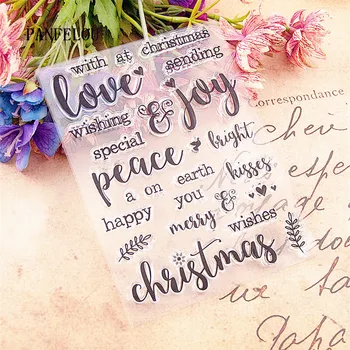 PANFELOU
with at christmas
sending
love & joy
wishing
special
peace bright
a on earth kisses
happy you &
merry wishes
christmas
Correspondance